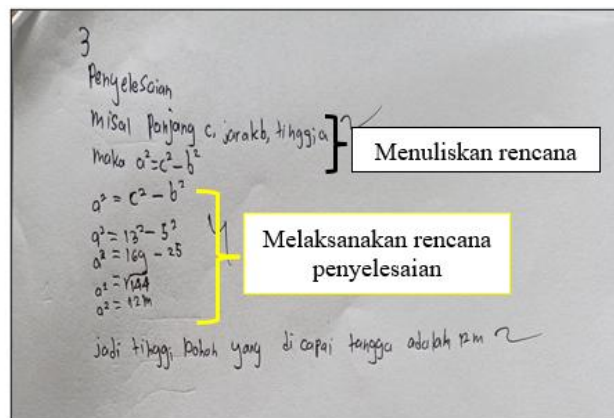 3
Penyelesaian
misal Panjang c, jarak b, tinggi a
maka a² = c² - b²
Menuliskan rencana
a² = c² - b²
a² = 13² - 5²
a² = 169 - 25
a² = √144
a² = 12m
Melaksanakan rencana
penyelesaian
jadi tinggi pohon yang di capai tangga adalah 12m